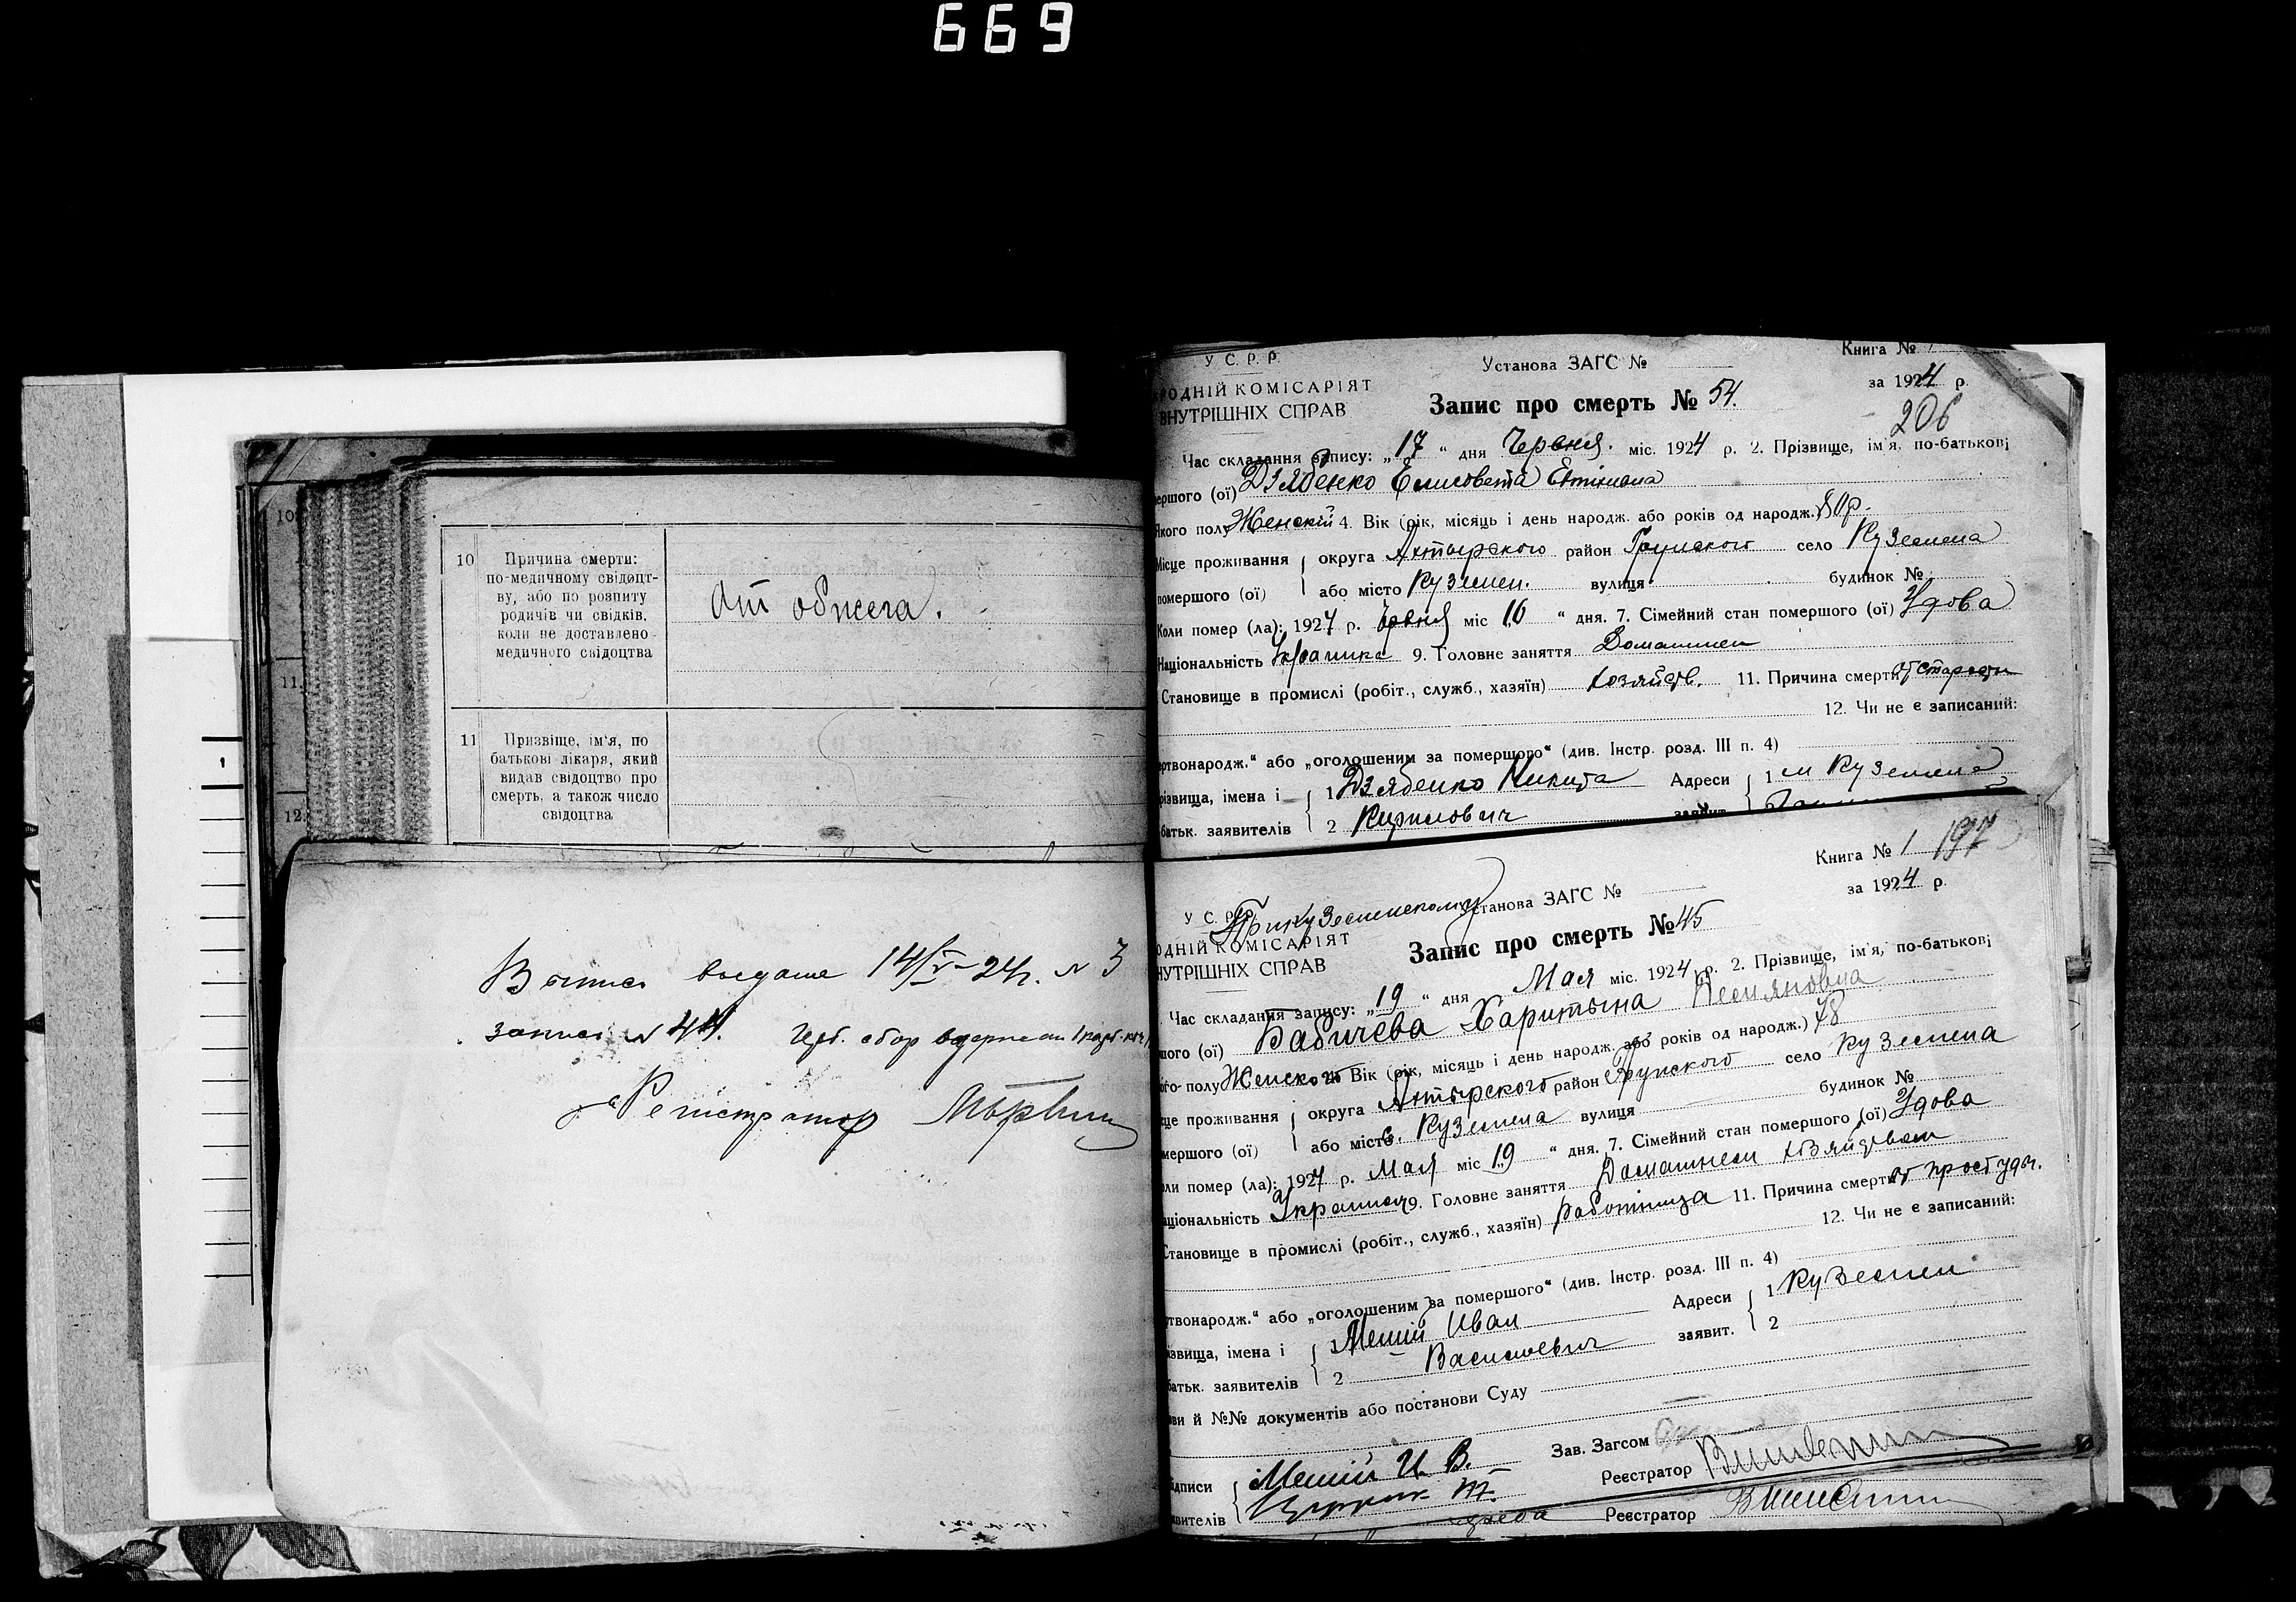 669
10
11
12
10 Причина смерти:
по-медичному свідоцт-
ву, або по розпиту
родичів чи свідків,
коли не доставлено
медичного свідоцтва
От обжега.
11 Призвіще, ім'я, по
батькові лікаря, який
видав свідоцтво про
смерть, а також число
свідоцтва
1
14/V-24г. № 3
запись № 44. сбор
Регистратор
У. С. Р. Р. Установа ЗАГС № Книга №
РОДНІЙ КОМІСАРІЯТ за 1924 р.
ВНУТРІШНІХ СПРАВ Запис про смерть № 54.
206
Час складання запису: „17“ дня Червня міс. 1924 р. 2. Прізвище, ім'я, по-батькові
ершого (ої) Дзябенко Елисовета
якого полу Женскій 4. Вік (рік, місяць і день народж. або років од народж.) 80р.
Місце проживання округа Ахтырского район Грунского село Куземена
помершого (ої) або місто Куземен. вулиця будинок №
Коли помер (ла): 1924 р. Червня міс 16 “ дня. 7. Сімейний стан помершого (ої) Удова
Національність 9. Головне заняття Домашнем
Становище в промислі (робіт., служб., хазяїн) хозяйств. 11. Причина смерти от старости
12. Чи не є записаний:
ертвонародж.“ або „оголошеним за помершого“ (див. Інстр. розд. III п. 4)
різвища, імена і 1 Дзябенко Никита Адреси 1 м Куземена
батьк. заявителів 2 Кирилович заявит.
Книга № 1 197
за 1924 р.
У. С. Р. Р. При Куземенскому Установа ЗАГС №
ОДНІЙ КОМІСАРІЯТ
НУТРІШНІХ СПРАВ Запис про смерть № 45
Час складання запису: „19“ дня Мая міс. 1924 р. 2. Прізвище, ім'я, по-батькові
шого (ої) Бабичева Харитына
ого полу Женского Вік (рік, місяць і день народж. або років од народж.) 78
це проживання округа Ахтырского район Грунского село Куземена
мершого (ої) або місто с. Куземена вулиця будинок №
ли помер (ла): 1924 р. Мая міс 19 “ дня. 7. Сімейний стан помершого (ої) Удова
ціональність 9. Головне заняття Домашнем хозяйством
Становище в промислі (робіт., служб., хазяїн) работница 11. Причина смерти от простуды.
12. Чи не є записаний:
ртвонародж.“ або „оголошеним за помершого“ (див. Інстр. розд. III п. 4)
ізвища, імена і 1 Мешій Иван Адреси 1 Куземен
батьк. заявителів 2 Василиевич заявит. 2
ви й №№ документів або постанови Суду
Зав. Загсом
ідписи Мешій И. В. Реєстратор
вителів Реєстратор